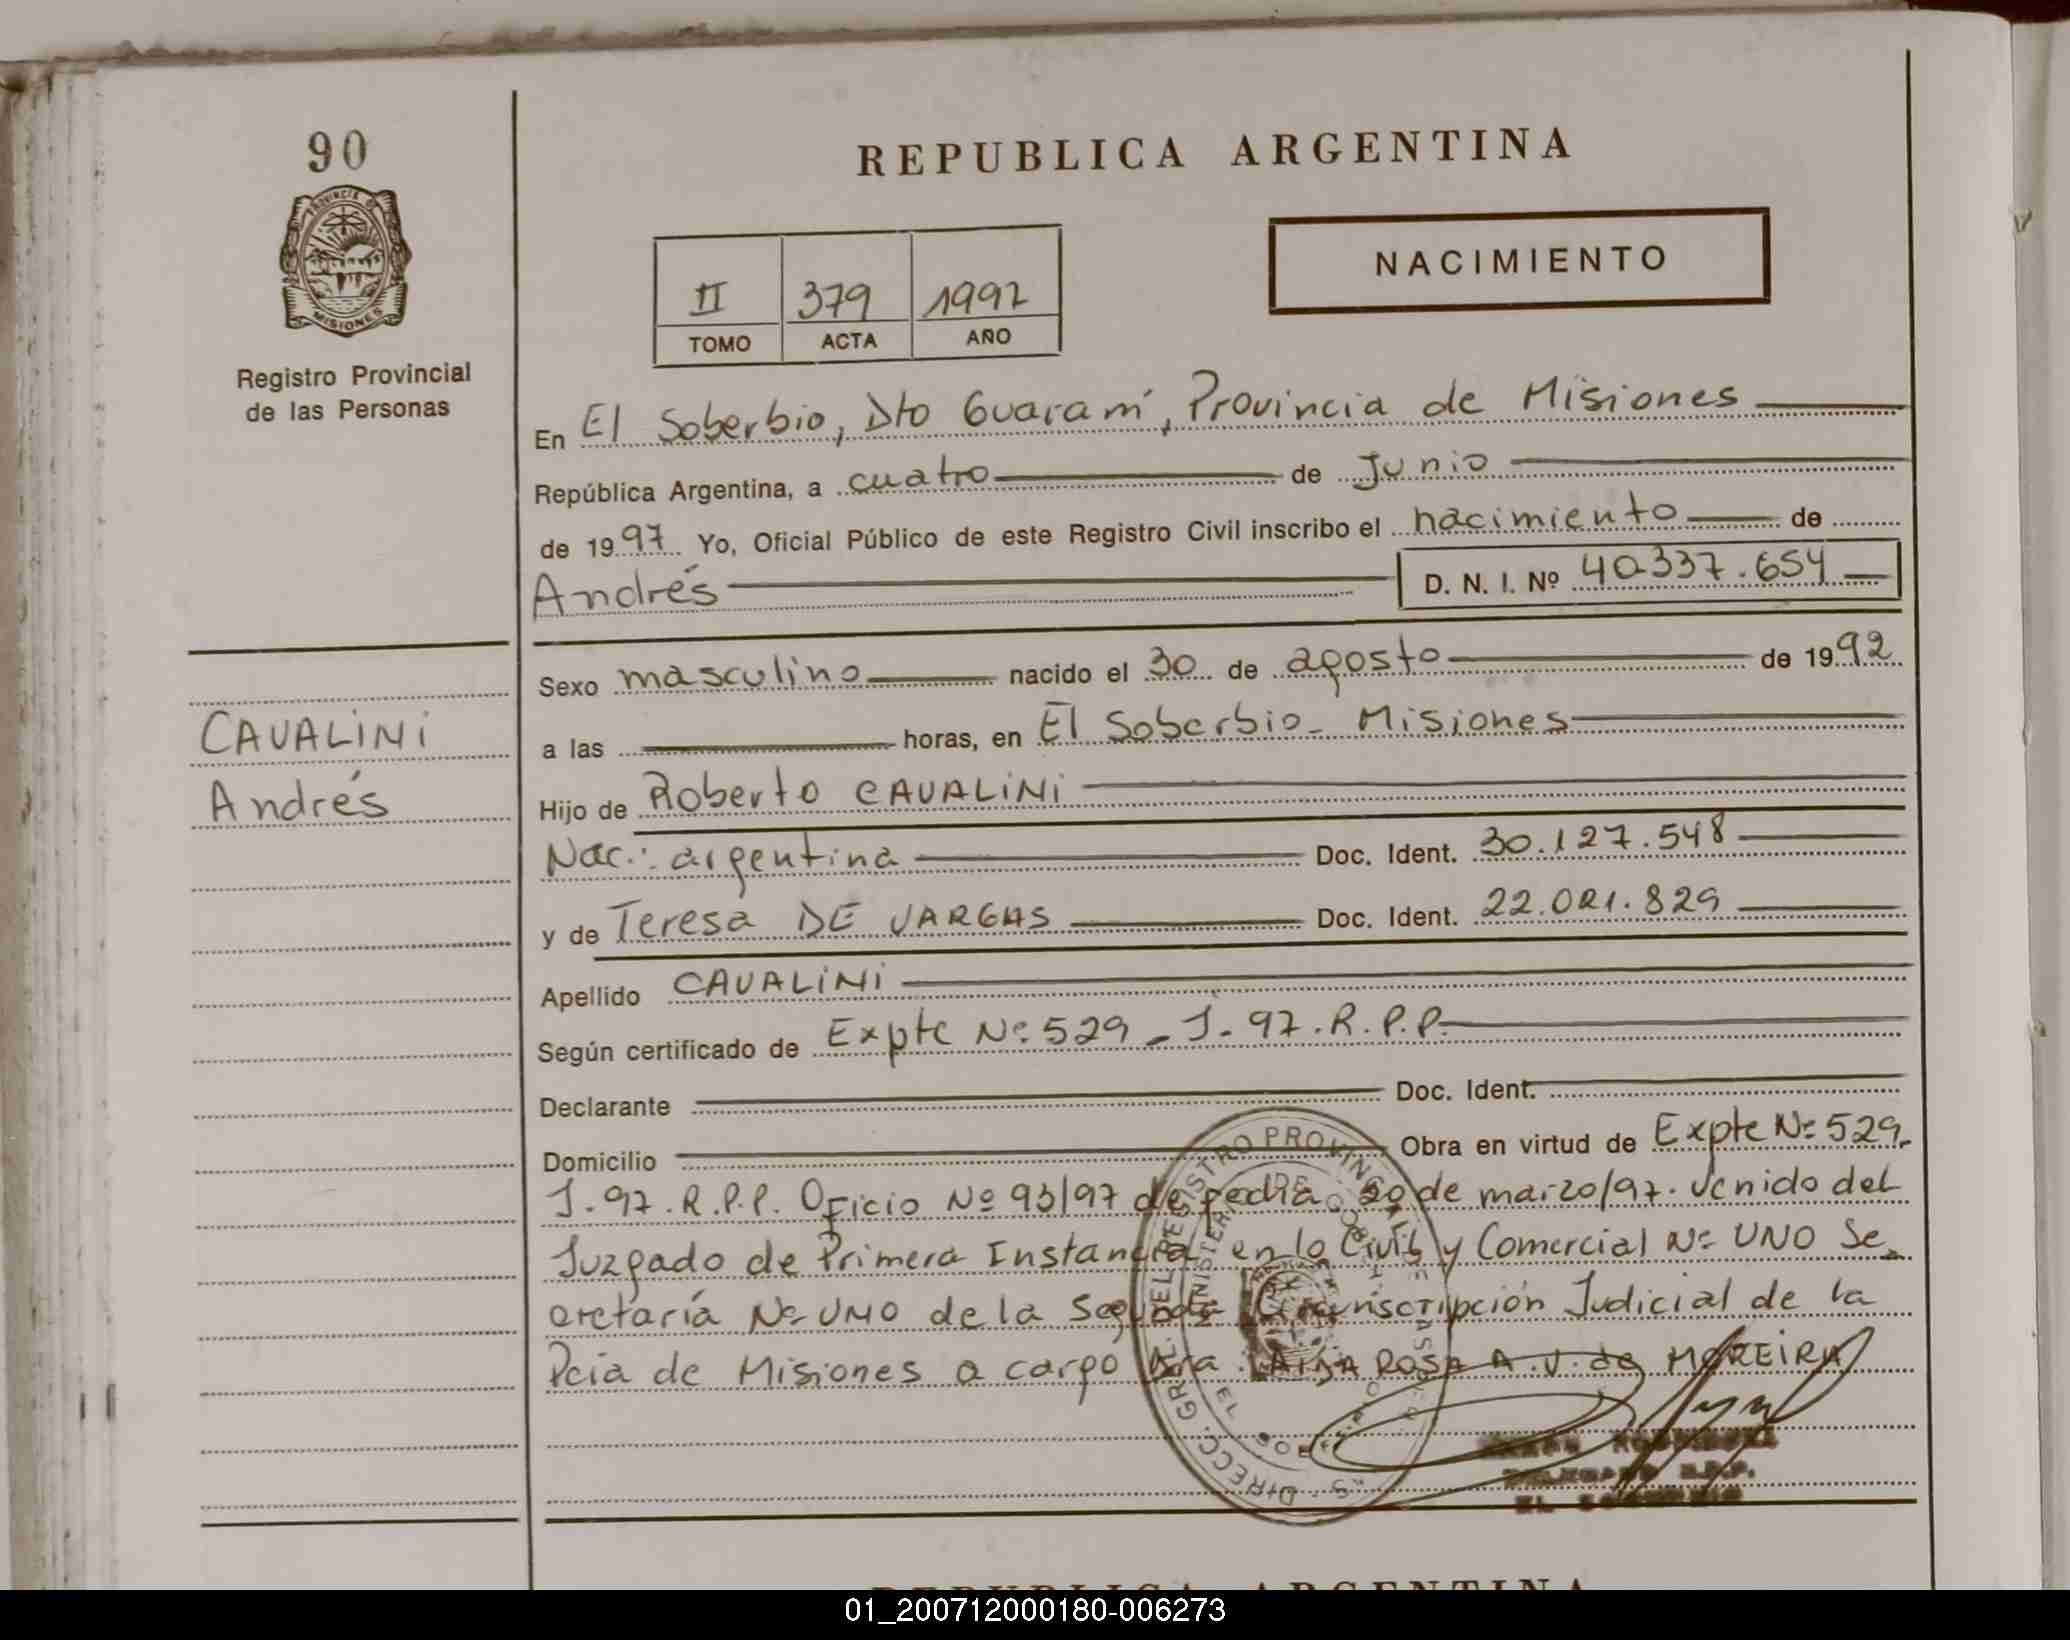 90
REPUBLICA ARGENTINA
PROVINCIA D
MISIONES
Registro Provincial
de las Personas
NACIMIENTO
II 379 1992
TOMO ACTA AÑO
En El Soberbio, Dto Guaraní, Provincia de Misiones
República Argentina, a cuatro de Junio
de 1997 Yo, Oficial Público de este Registro Civil inscribo el nacimiento de
Andrés D. N. I. Nº 40.337.654
Sexo masculino nacido el 30 de agosto de 1992
a las horas, en El Soberbio - Misiones
CAVALiNi
Andrés
Hijo de Roberto CAVALiNi
Nac.: argentina Doc. Ident. 30.127.548
y de Teresa DE VARGAS Doc. Ident. 22.021.829
Apellido CAVALiNi
Según certificado de Expte Nº 529 - J - 97. R. P. P.
Declarante Doc. Ident.
Domicilio Obra en virtud de Expte Nº 529-
J - 97. R.P.P. Oficio Nº 93/97 de fecha 20 de marzo/97. Venido del
Juzgado de Primera Instancia en lo Civil y Comercial Nº UNO Se-
cretaría Nº UNO de la Segunda Circunscripción Judicial de la
Pcia de Misiones a cargo Dra. ROSA A. V. de MOREIRA
DIRECC. GRAL. DEL REGISTRO PROVINCIAL DE LAS
EL SOBERBIO
01_200712000180-006273